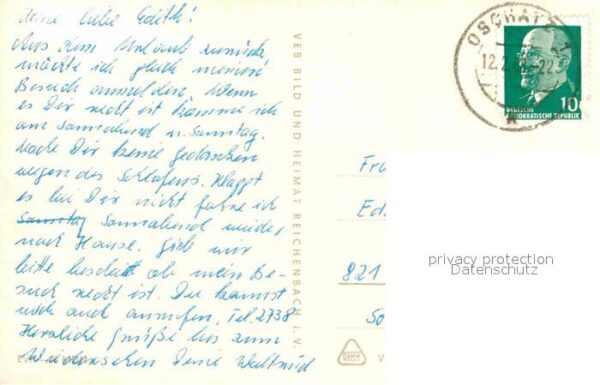 Meine liebe Edith!
Aus dem Urlaub zurück
möchte ich gleich meinen
Besuch anmelden. Wenn
es Dir recht ist komme ich
am Sonnabend u. Sonntag.
Mach Dir keine Gedanken
wegen des Schlafens. Klappt
es bei Dir nicht fahre ich
Sonnabend wieder
nach Hause. Gieb mir
bitte bescheid ob mein Be-
such recht ist. Du kannst
mich auch anrufen. Tel. 2738
Herzliche Grüße bis zum
Wiedersehen Deine Waltraud
VEB BILD UND HEIMAT REICHENBACH I. V.
OSCHATZ 1
12.2. -22
10
DEUTSCHE
DEMOKRATISCHE REPUBLIK
Fra
Ed
821
So
V
privacy protection
Datenschutz